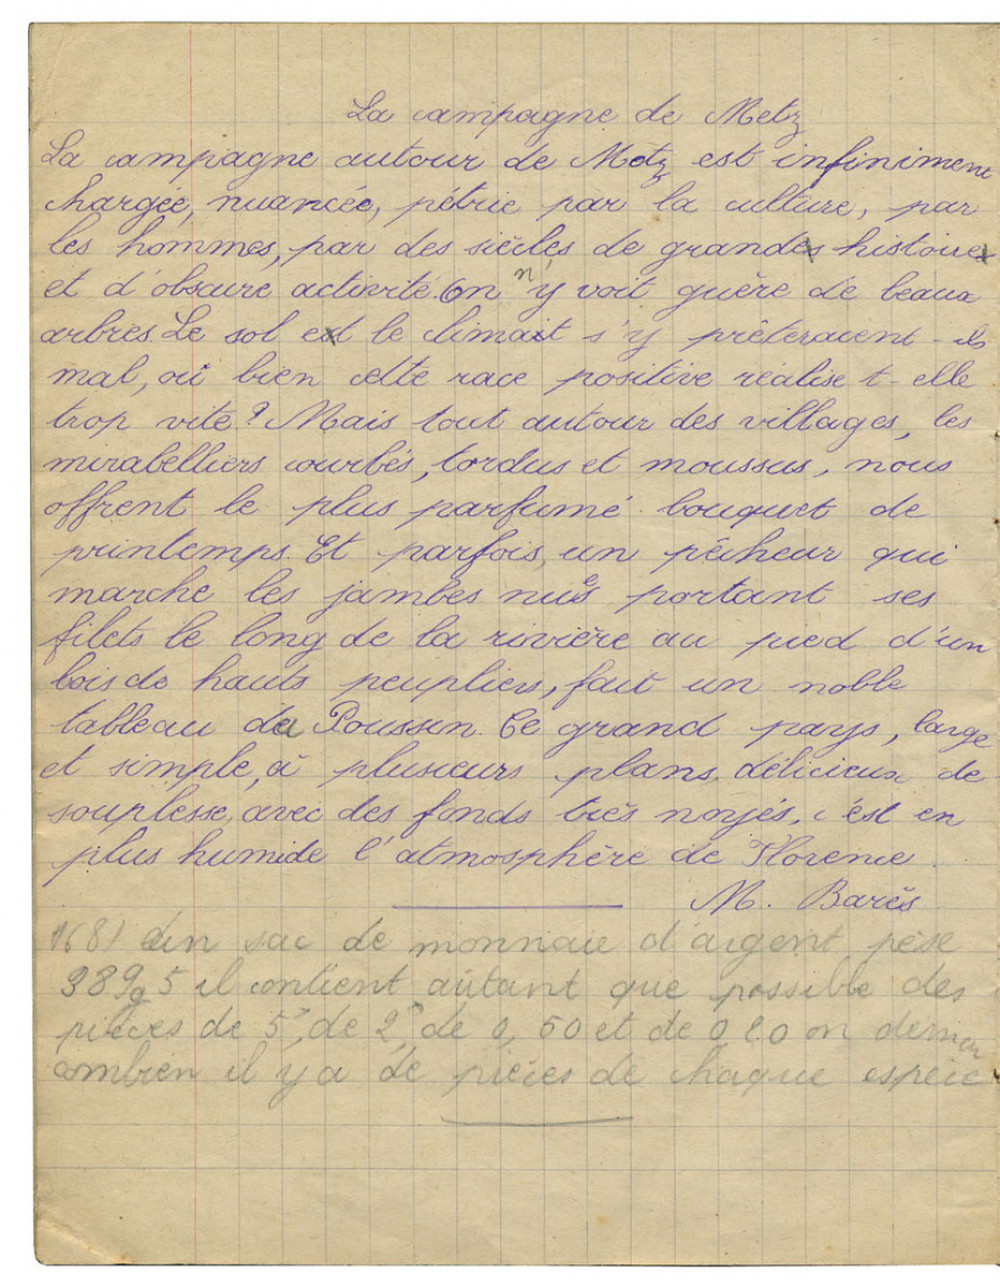 La campagne de Metz
La campagne autour de Metz est infiniment
chargée, nuancée, pétrie par la culture, par
les hommes, par des siècles de grandes histoires
et d'obscure activité. On n'y voit guère de beaux
arbres. Le sol est le climat s'y prêteraient-ils
mal, où bien cette race positive réalise t-elle
trop vite? Mais tout autour des villages, les
mirabelliers courbés, tordus et moussus, nous
offrent le plus parfumé bouquet de
printemps. Et parfois, un pêcheur qui
marche les jambes nues portant ses
filets le long de la rivière au pied d'un
bois de hauts peupliers, fait un noble
tableau du Poussin. Ce grand pays, large
et simple, à plusieurs plans délicieux de
souplesse, avec des fonds très noyés, c'est en
plus humide l'atmosphère de Florence.
M. Barès
168) Un sac de monnaie d'argent pèse
389g5 il contient autant que possible des
pièces de 5f, de 2f, de 0,50 et de 0 20 on deman
combien il y a de pièces de chaque espèce